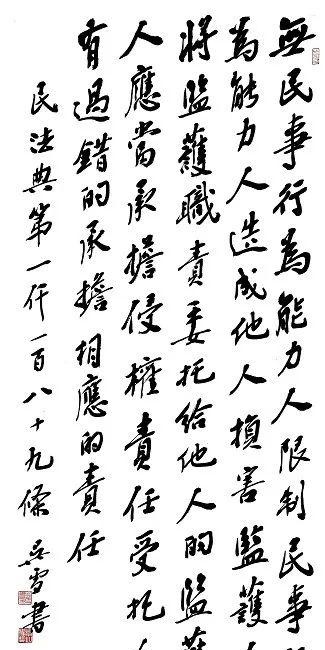 無民事行為能力人限制民事
為能力人造成他人損害監護人
將監護職責委托給他人的監
人應當承擔侵權責任受托
有過錯的承擔相應的責任
民法典第一仟一百八十九條 吳雪書